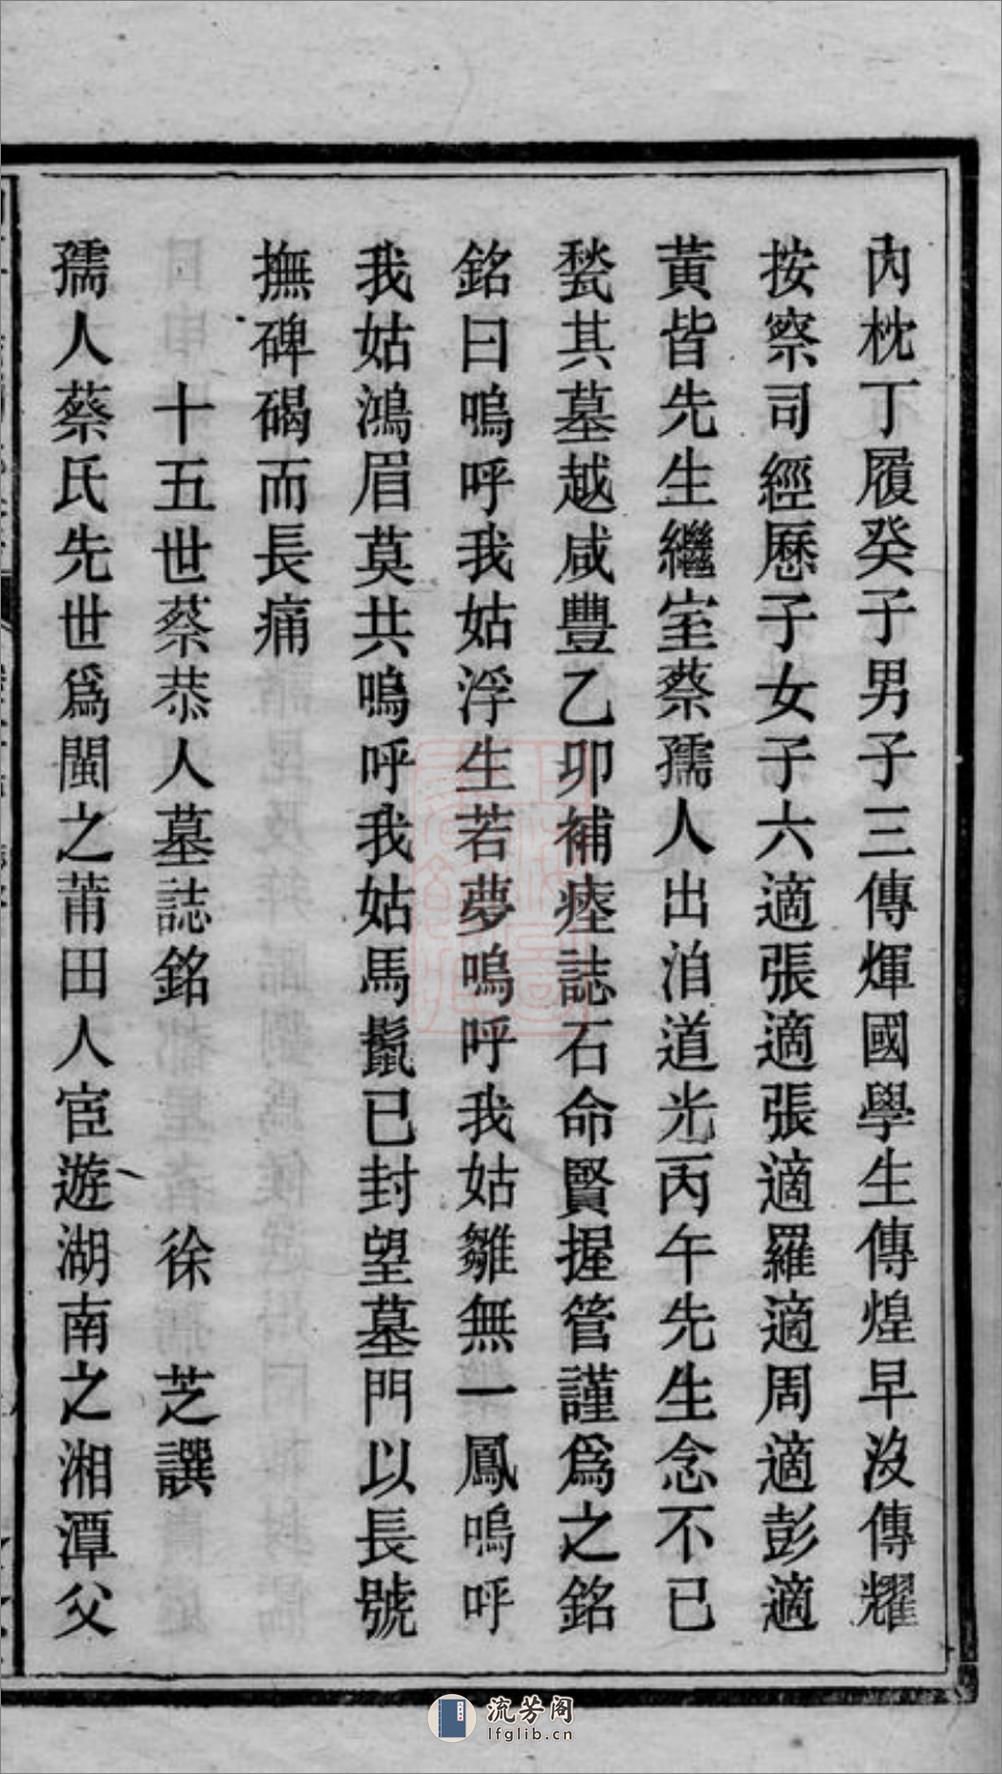 內枕丁履癸子男子三傳煇國學生傳煌早沒傳耀
按察司經歷子女子六適張適張適羅適周適彭適
黃皆先生繼室蔡孺人出洎道光丙午先生念不已
甃其墓越咸豐乙卯補瘞誌石命賢握管謹爲之銘
銘曰嗚呼我姑浮生若夢嗚呼我姑雛無一鳳嗚呼
我姑鴻眉莫共嗚呼我姑馬鬛已封望墓門以長號
撫碑碣而長痛
十五世蔡恭人墓誌銘 徐芝譔
孺人蔡氏先世爲閩之莆田人宦遊湖南之湘潭父
流芳阁
lfglib.cn